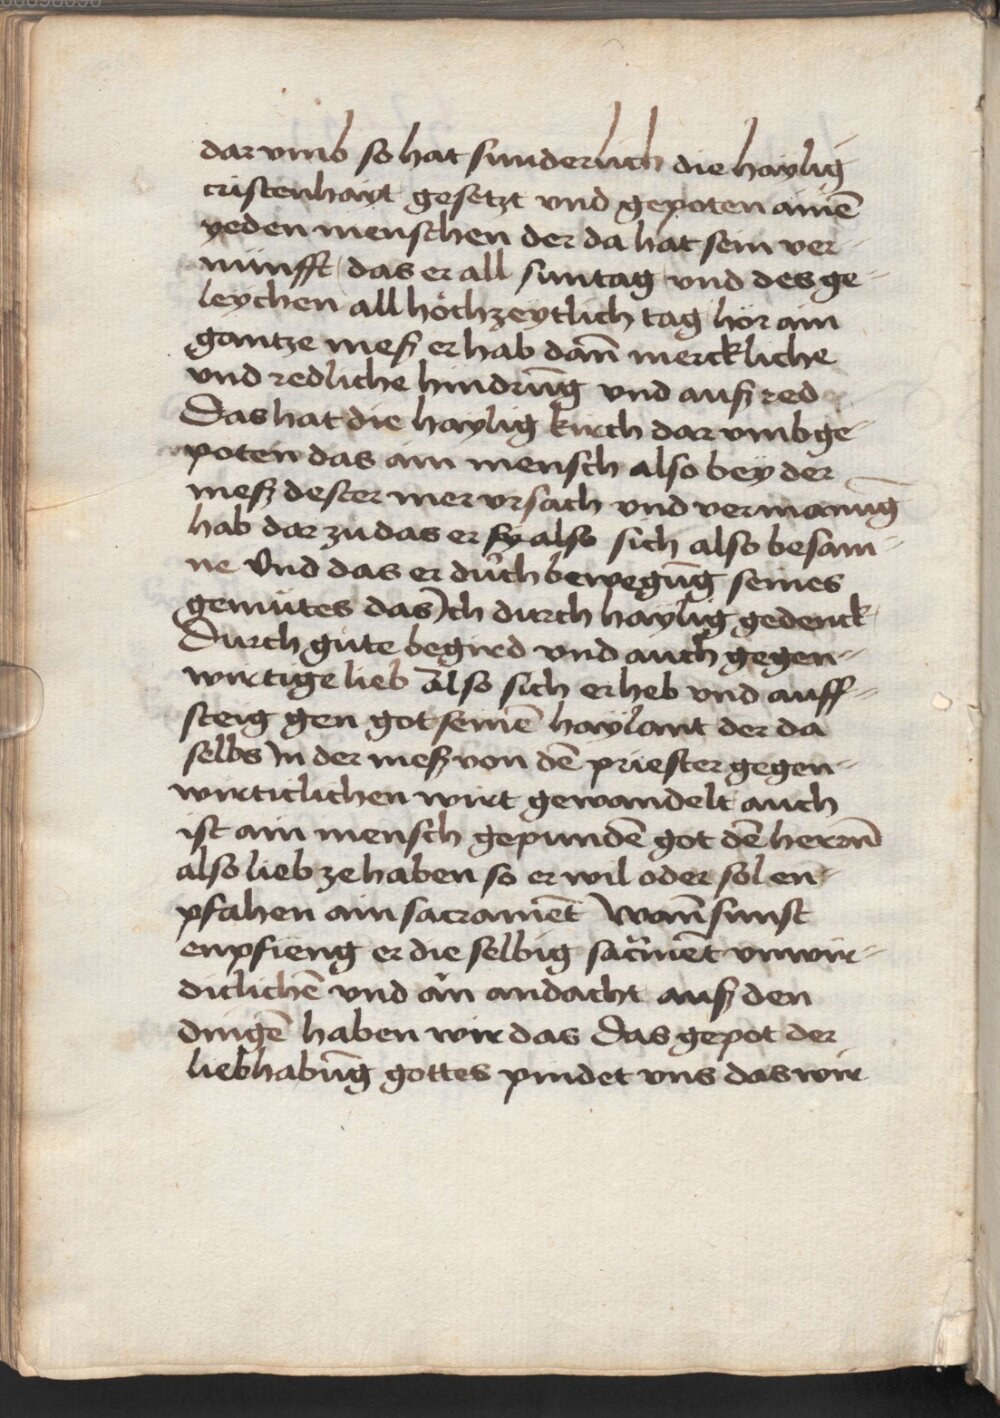 dar vmb so hat sunderlich die haylig
cristenhayt gesetzt vnd gepoten ainē
yeden menschen der da hat sein ver
nunfft das er all suntag vnd des ge-
leychen all höchzeytlich tag hör ain
gantze meß er hab dañ merckliche
vnd redliche hindrūg vnd auß red
Das hat die haylig kirch dar vmb ge-
poten das ain mensch also bey der
meß dester mer vrsach vnd vermanūg
hab dar zu das er sy also sich also besam-
ne Vnd das er durch bewegūg seines
gemütes das ich durch haylig gedenck
Durch gute begird vnd auch gegen-
wirtige lieb Also sich erheb vnd auff-
steig gen got seinē haylant der da
selbs in der meß von dē priester gegen-
wirticlichen wirt gewandelt auch
ist ain mensch gepundē got dē herrn̄
also lieb ze haben so er wil oder sol en-
pfahen ain sacramēt wañ sunst
enpfieng er die selbig sacrmēt vnwir-
diclichē vnd än andacht auß den
dingē haben wir das Das gepot der
liebhabūg gottes pindet vns das wir